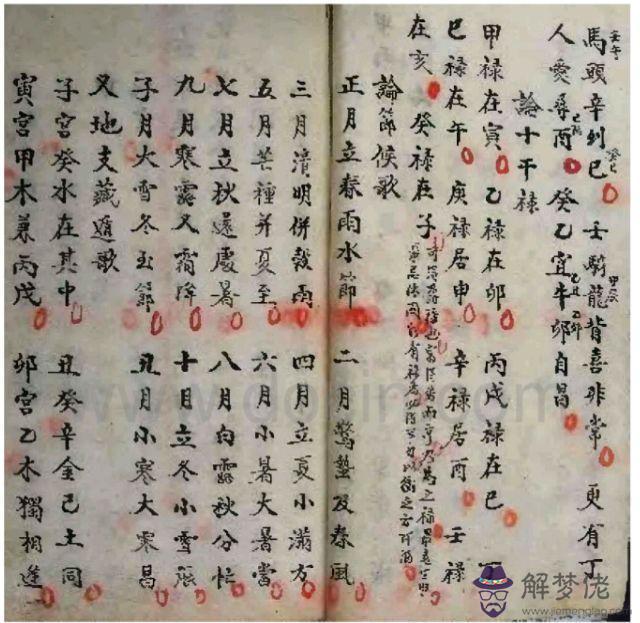 馬頭辛列巳 壬騎龍背喜非常 更有丁
人愛尋酉 癸乙宜牛卯自昌
論十干禄
甲禄在寅 乙禄在卯 丙戊禄在巳 丁
巳禄在午 庚禄居申 辛禄居酉 壬禄
在亥 癸禄在子
論節候歌
正月立春雨水節 二月驚蟄及春風
三月清明併穀雨 四月立夏小滿方
五月芒種并夏至 六月小暑大暑當
七月立秋還處暑 八月白露秋分忙
九月寒露又霜降 十月立冬小雪張
子月大雪冬至節 丑月小寒大寒昌
又地支藏遁歌
子宮癸水在其中 丑癸辛金己土同
寅宮甲木兼丙戊 卯宮乙木獨相逢
解梦佬
www.jiemenglao.com